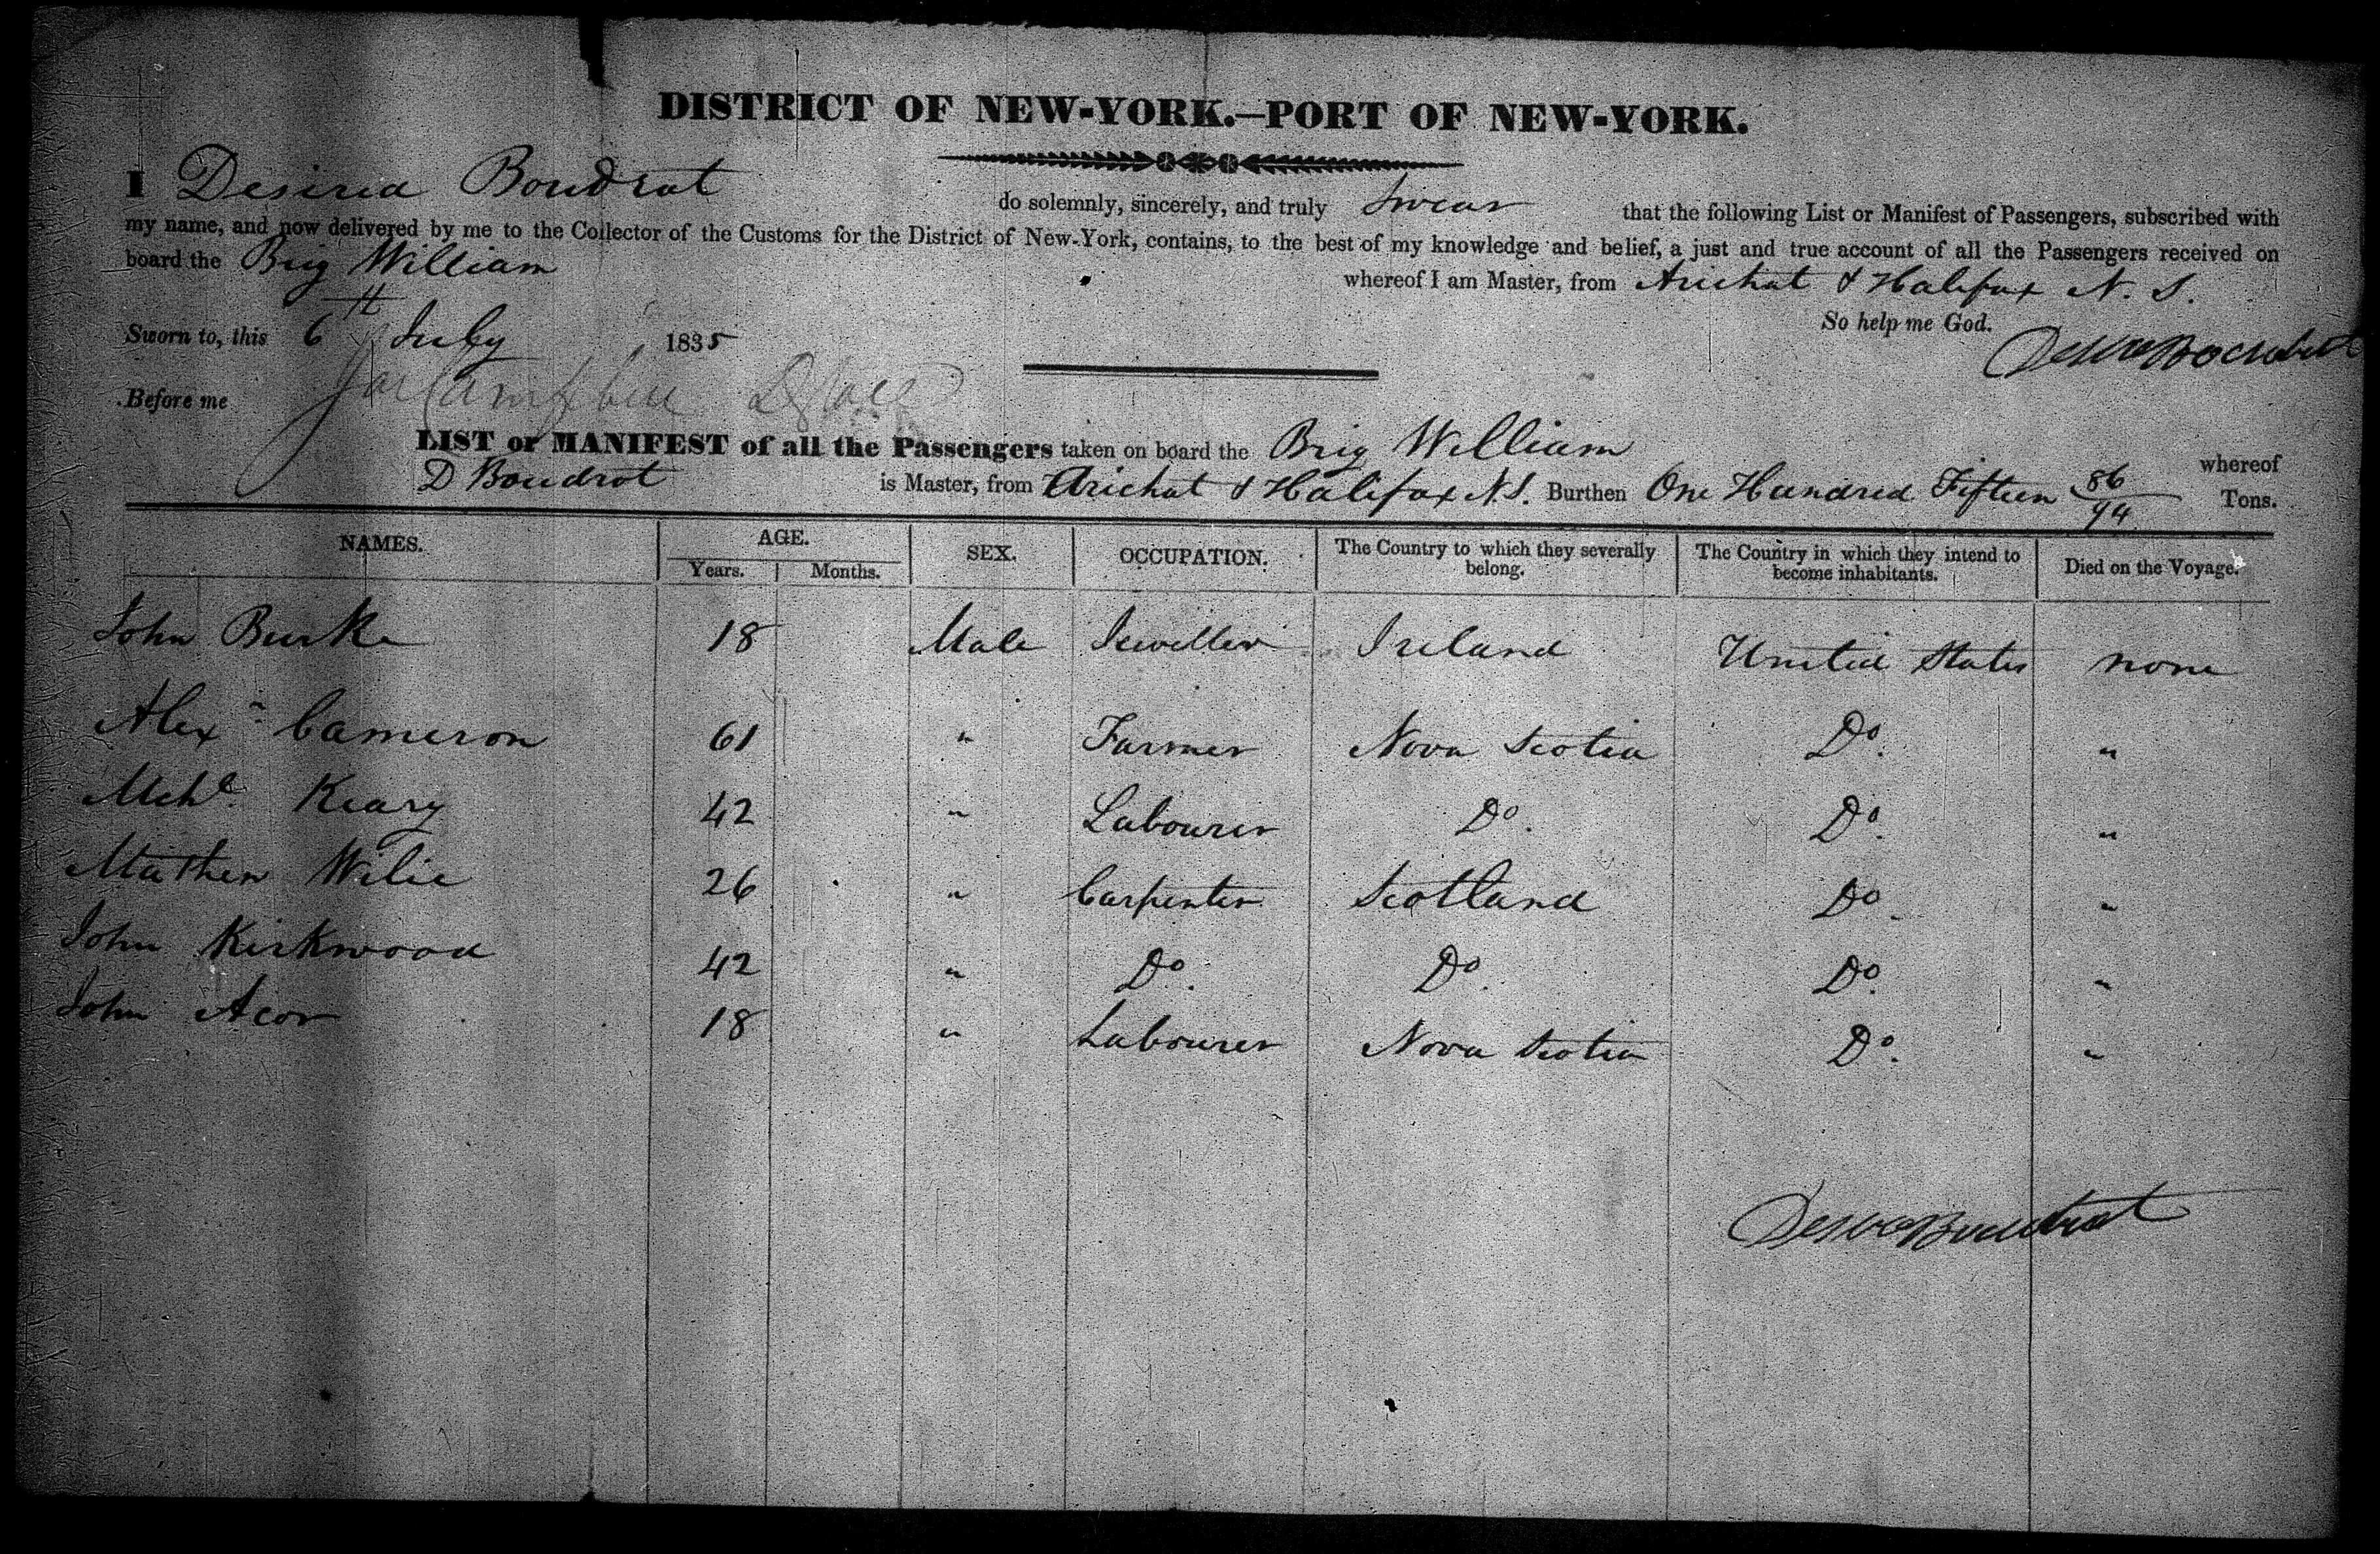 DISTRICT OF NEW-YORK.—PORT OF NEW-YORK.
I Desired Boudrot do solemnly, sincerely, and truly Swear that the following List or Manifest of Passengers, subscribed with
my name, and now delivered by me to the Collector of the Customs for the District of New-York, contains, to the best of my knowledge and belief, a just and true account of all the Passengers received on
board the Brig William whereof I am Master, from Arichat & Halifax N. S.
So help me God.
Sworn to, this 6th July 1835
Before me
LIST or MANIFEST of all the Passengers taken on board the Brig William whereof
D Boudrot is Master, from Arichat & Halifax N.S. Burthen One Hundred Fifteen 86/94 Tons.
NAMES. AGE. SEX. OCCUPATION. The Country to which they severally belong. The Country in which they intend to become inhabitants. Died on the Voyage.
Years. Months.
John Burke 18 Male Jeweller Ireland United States none
Alexr Cameron 61 " Farmer Nova Scotia Do. "
Mchl. Keary 42 " Labourer Do. Do. "
Mathew Wilie 26 " Carpenter Scotland Do. "
John Kirkwood 42 " Do. Do. Do. "
John Acor 18 " Labourer Nova Scotia Do. "